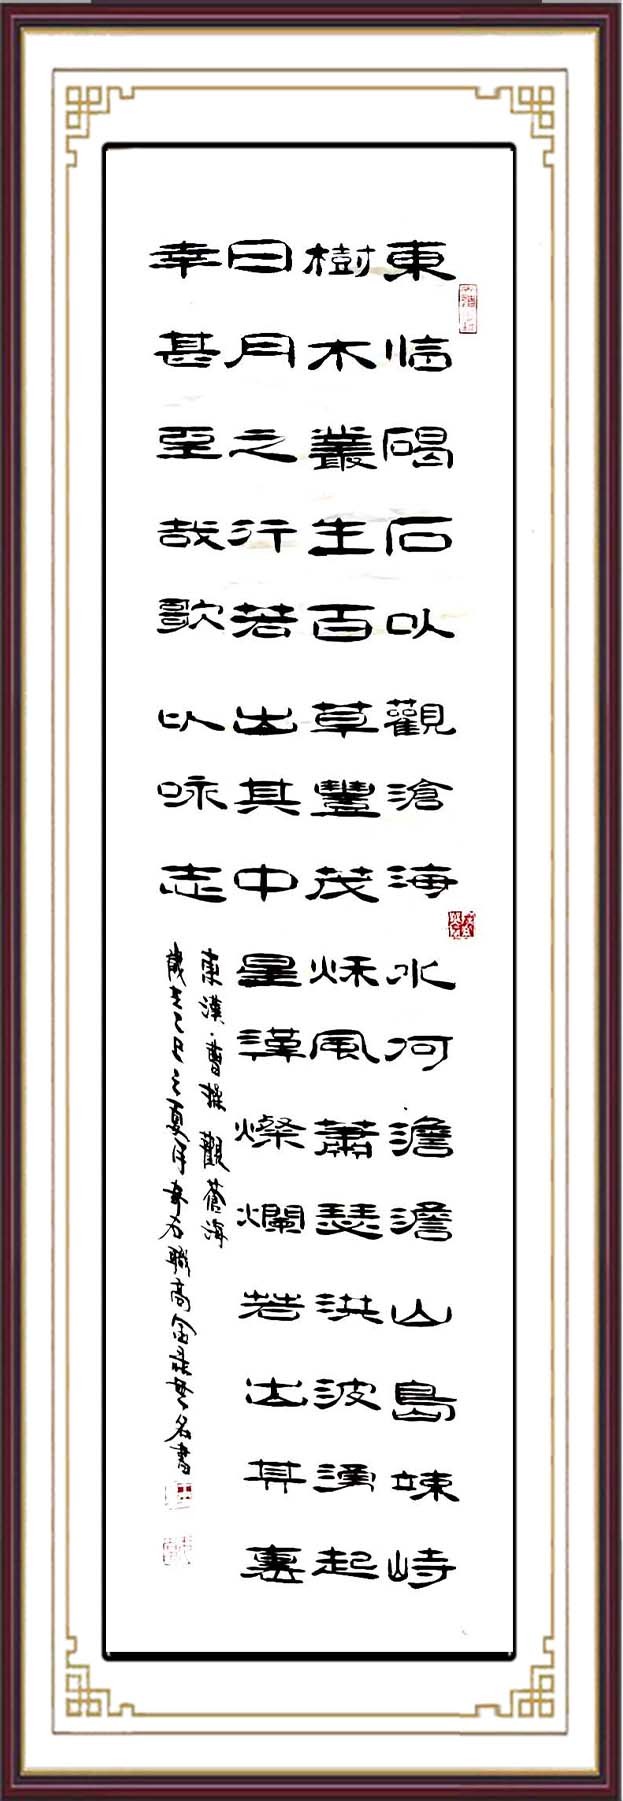 東临碣石以觀滄海水何澹澹山島竦峙
樹木叢生百草豐茂秌風蕭瑟洪波湧起
日月之行若出其中星漢燦爛若出其裏
幸甚至哉歌以咏志
東漢·曹操 觀蒼海
歲在乙巳之夏月 石職高 無名書